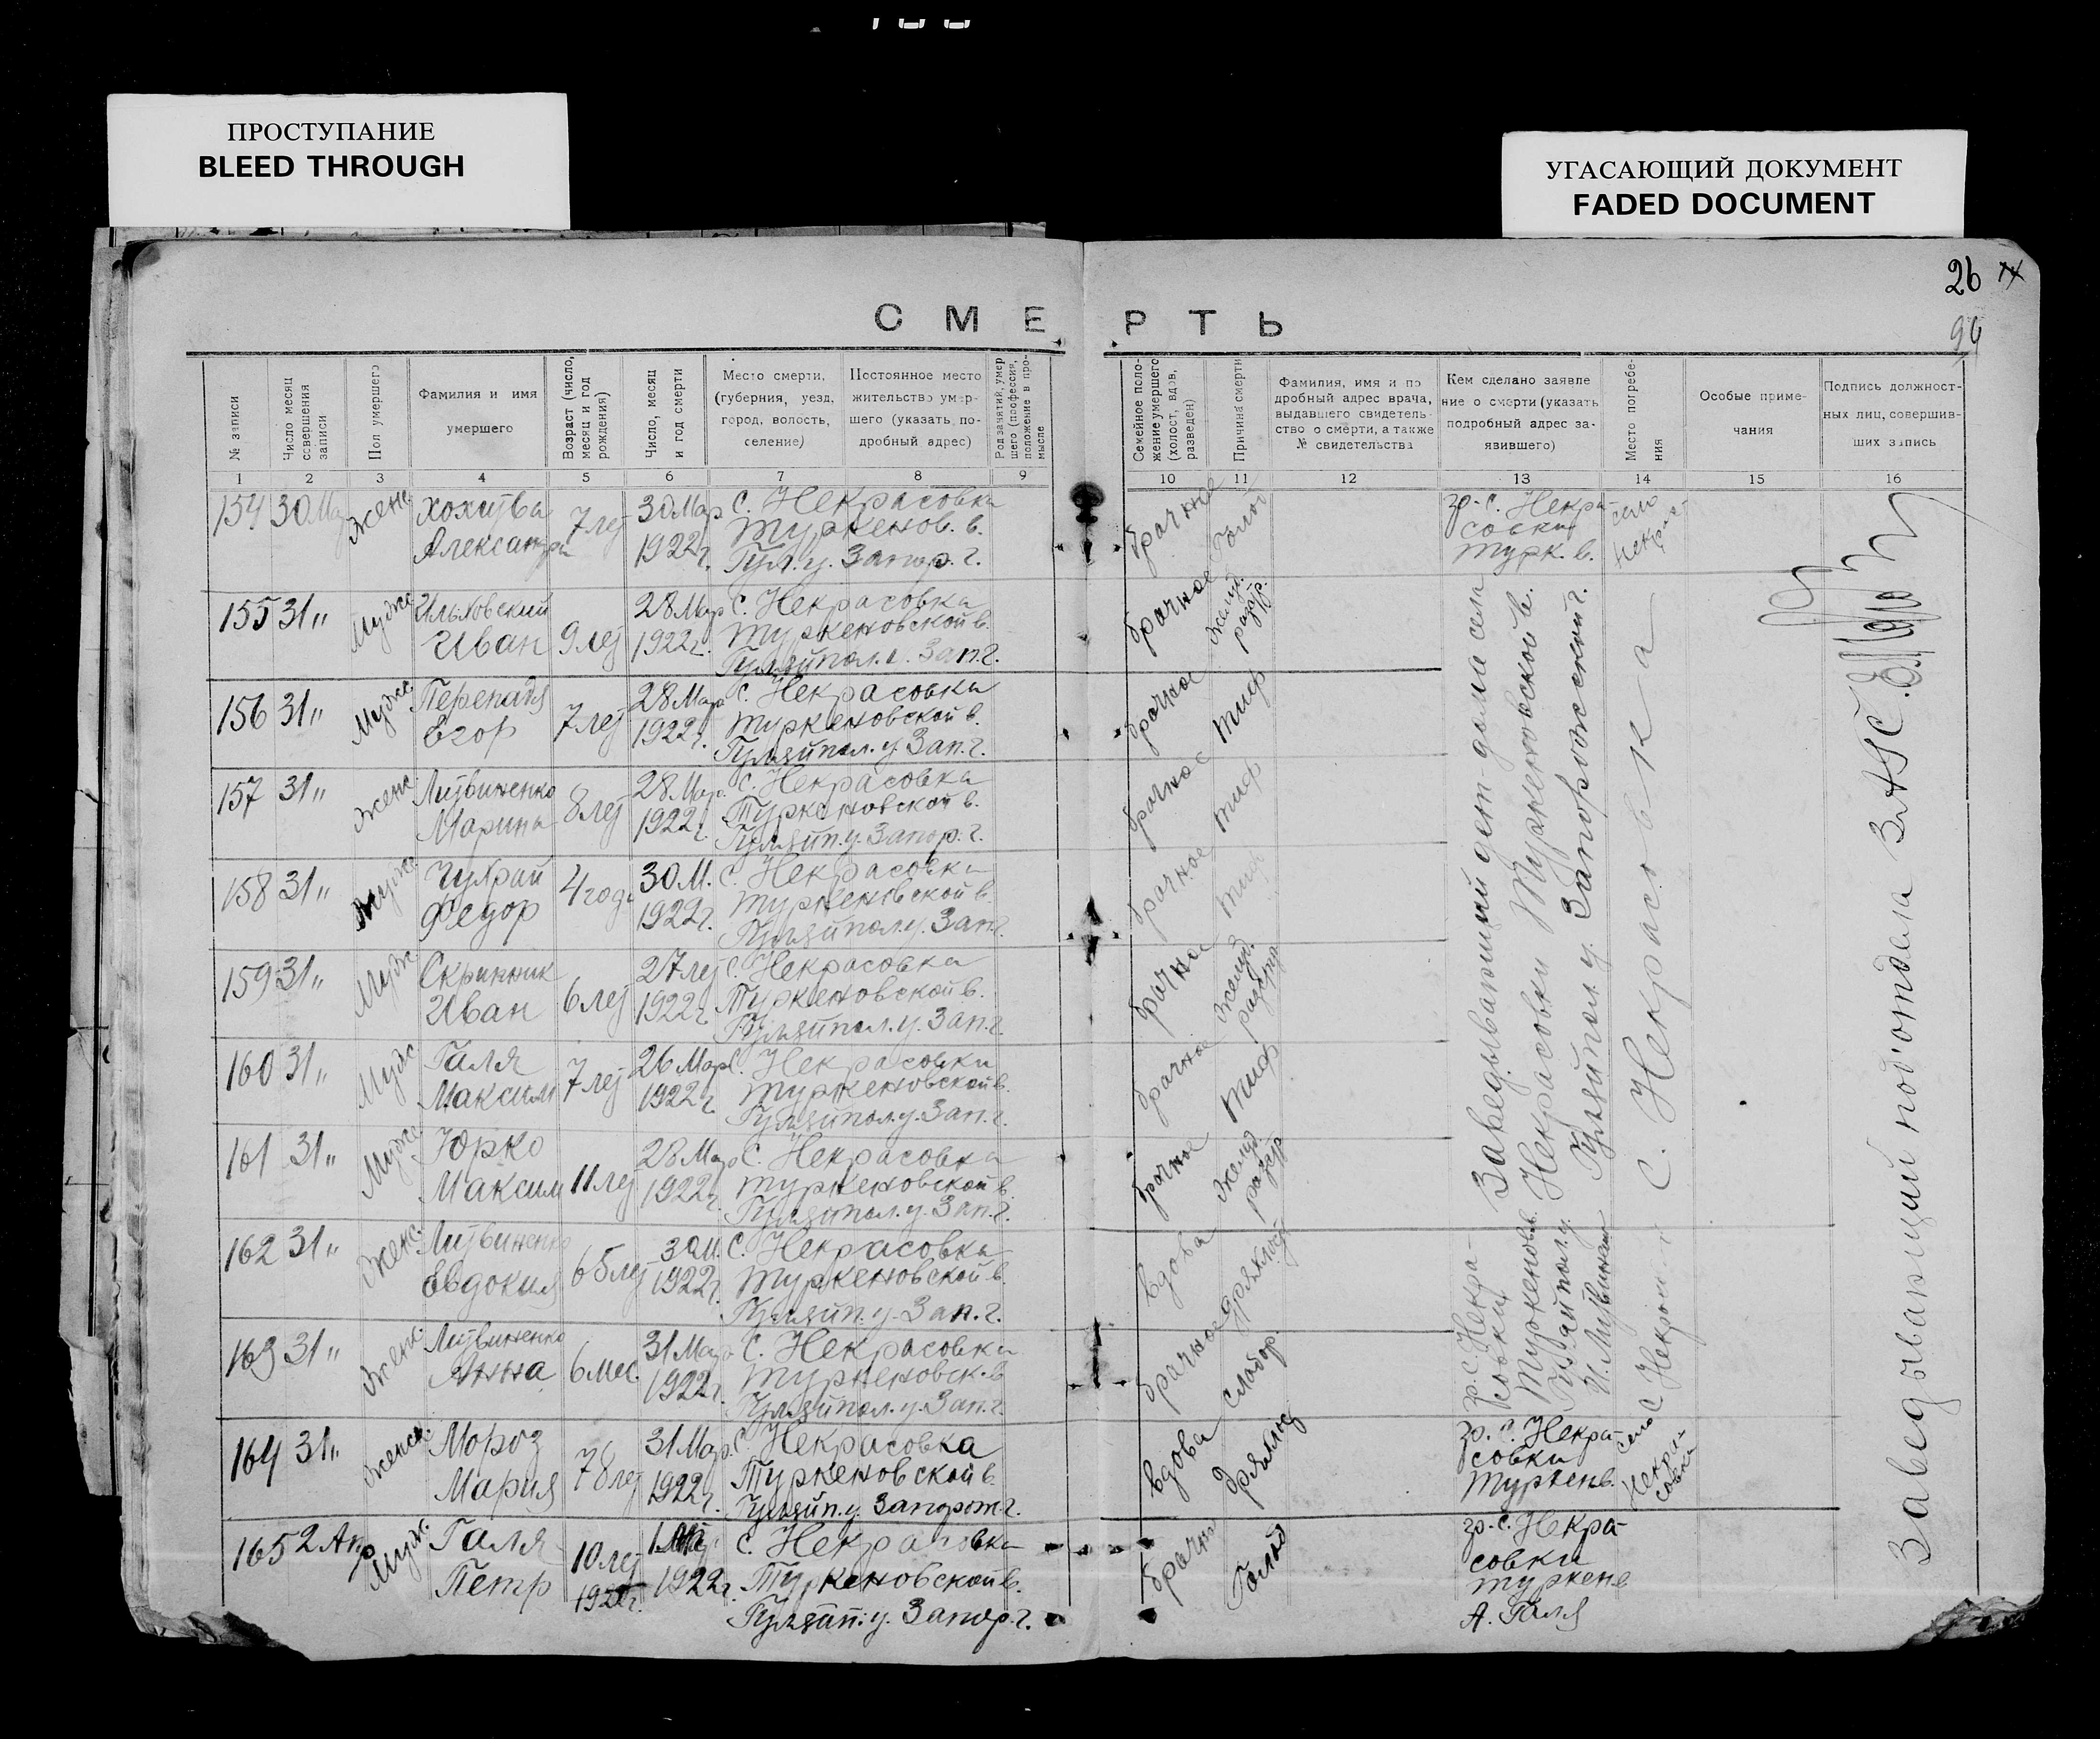 ПРОСТУПАНИЕ
BLEED THROUGH
УГАСАЮЩИЙ ДОКУМЕНТ
FADED DOCUMENT
26
96
СМЕРТЬ
№ записи
Число месяц совершения записи
Пол умершего
Фамилия и имя умершего
Возраст (число, месяц и год рождения)
Число, месяц и год смерти
Место смерти, (губерния, уезд, город, волость, селение)
Постоянное место жительство умершего (указать подробный адрес)
Род занятий, умершего (профессия, положение в промысле
Семейное положение умершего (холост, вдов, разведен)
Причина смерти
Фамилия, имя и подробный адрес врача, выдавшего свидетельство о смерти, а также № свидетельства
Кем сделано заявление о смерти (указать подробный адрес заявившего)
Место погребения
Особые примечания
Подпись должностных лиц, совершивших запись
1 2 3 4 5 6 7 8 9 10 11 12 13 14 15 16
154 30 Мар Женс
7 лет 30 Мар 1922 г.
с. Некрасовка
Туркенов. в.
Гул. у. Запор. г.
брачное Голод
гр. с. Некрасовки
Турк. в.
155 31 " Мужс
Иван
9 лет 28 Мар 1922 г.
с. Некрасовка
Туркеновской в.
Гуляйпол. у. Зап. г.
брачное желуд.
156 31 " Мужс
Перепадя
Егор
7 лет 28 Мар 1922 г.
с. Некрасовка
Туркеновской в.
Гуляйпол. у. Зап. г.
брачное тиф
157 31 " Женс
Литвиненко
Марина
8 лет 28 Мар. 1922 г.
с. Некрасовка
Туркеновской в.
Гуляйп. у. Запор. г.
брачное тиф
158 31 " Мужс
Федор
4 года 30 М. 1922 г.
с. Некрасовка
Туркеновской в.
Гуляйпол. у. Зап. г.
брачное тиф
159 31 " Мужс
Скринник
Иван
6 лет 27 1922 г.
с. Некрасовка
Туркеновской в.
Гуляйпол. у. Зап. г.
брачное желуд.
160 31 " Мужс
Галя
Максим
7 лет 26 Мар 1922 г.
с. Некрасовка
Туркеновской в.
Гуляйпол. у. Зап. г.
брачное тиф
161 31 " Мужс
Юрко
Максим
11 лет 28 Мар 1922 г.
с. Некрасовка
Туркеновской в.
Гуляйпол. у. Зап. г.
брачное желуд.
Заведывающий дет-дома села
Некрасовки Туркеновской в.
Гуляйпол у. Запорожской г.
с. Некрасовка
162 31 " Женс.
Литвиненко
Евдокия
65 лет 30 М. 1922 г.
с. Некрасовка
Туркеновской в.
Гуляйп. у. Зап. г.
вдова дряхлость
163 31 " Женс.
Литвиненко
Анна
6 мес. 31 Мар 1922 г.
с. Некрасовка
Туркеновск. в
Гуляйпол. у. Зап. г.
брачное слабор.
гр. с. Некрасовки
Туркеновс.
164 31 " Женск.
Мороз
Мария
78 лет 31 Мар. 1922 г.
с. Некрасовка
Туркеновской в.
Гуляйп. у. Запорож. г.
вдова
гр. с. Некрасовки
Туркенв.
село Некрасовка
165 2 Апр Мужс.
Галя
Петр
10 лет
1922 г.
с. Некрасовка
Туркеновской в.
Гуляйп. у. Запор. г.
Голод
гр. с. Некрасовки
Туркенв
А. Галя
Заведывающий под'отдела ЗАГС